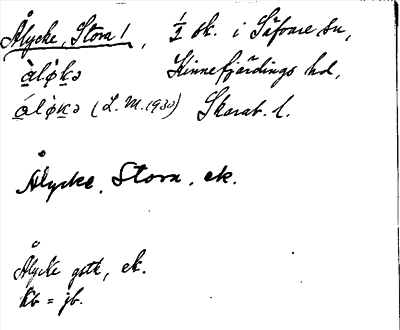 Ålycke, Stora 1, 1/2 sk. i Säfvare sn,
àlo̊kə Kinnefjärdings hd,
álo̊kə (L.M. 1930) Skarab. l.
Ålycke, Stora, ek.
Ålycke gatk, ek.
Kb = jb.